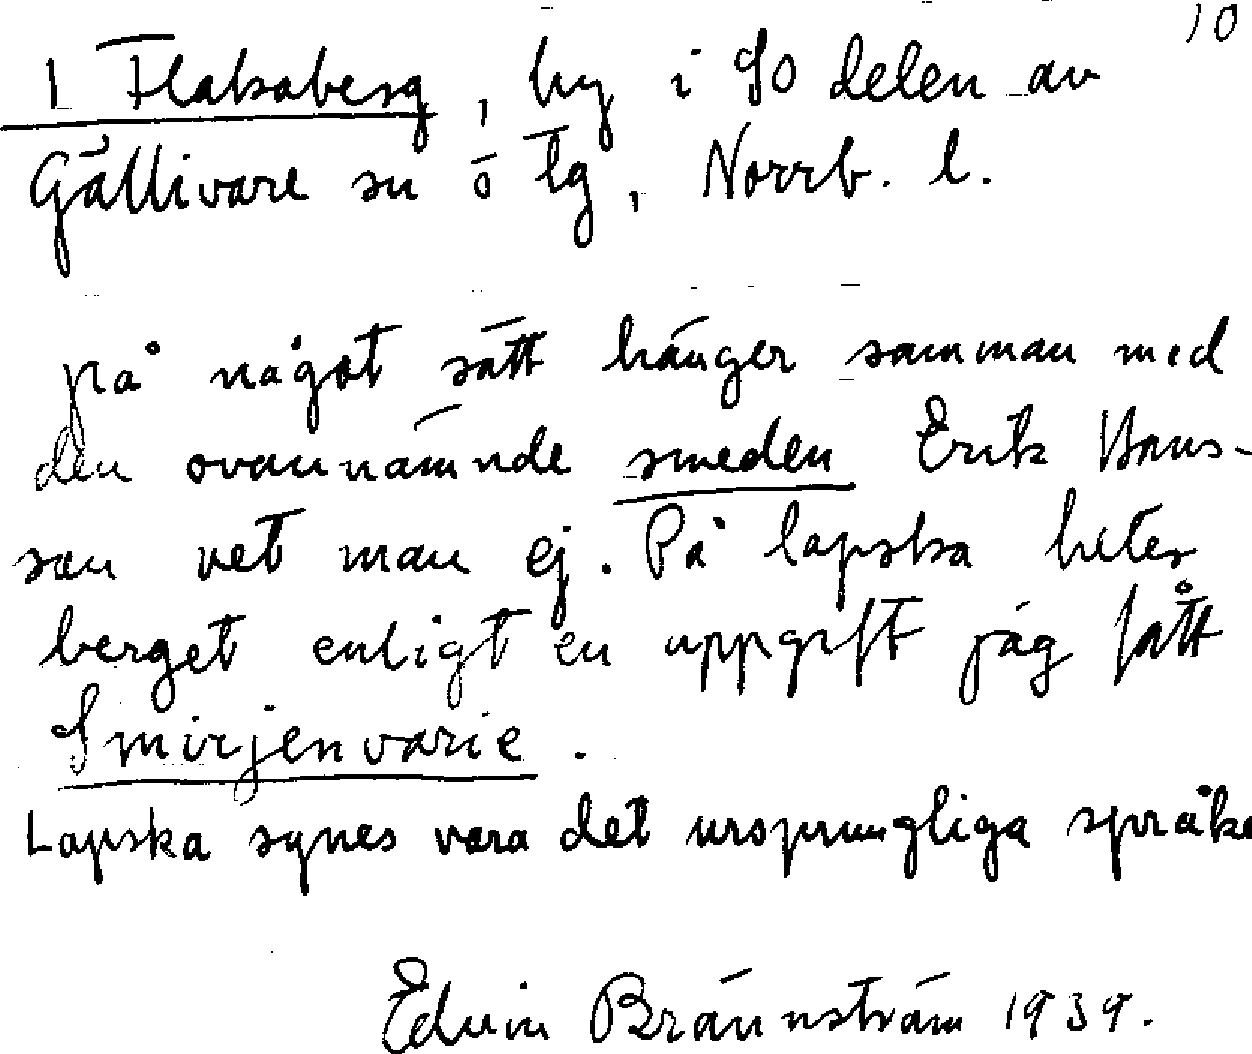 10
1 Flakaberg, by i SO delen av
Gällivare sn ö lg, Norrb. l.
på något sätt hänger samman med
den ovannämnde smeden Erik Hans-
son vet man ej. På lapska heter
berget enligt en uppgift jag fått
Smirjenvarie.
Lapska synes vara det ursprungliga språke
Edvin Brännström 1939.